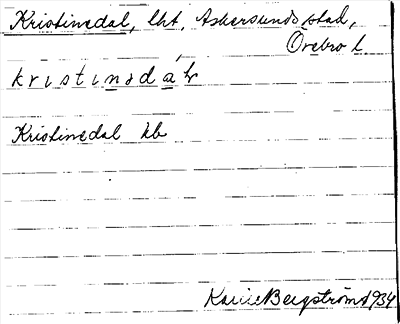 Kristinedal, lht, Askersunds stad,
Örebro l.
kristinsdáɫr
Kristinedal kb
Karin Bergström 1934